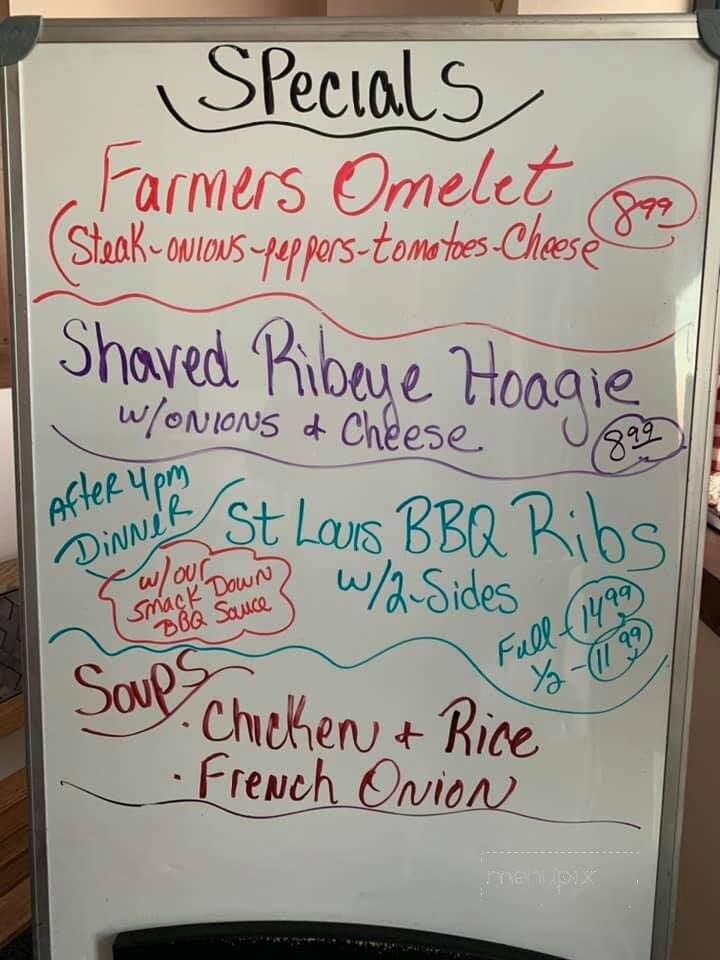 Specials
Farmers Omelet
(Steak-onions-peppers-tomatoes-Cheese
8.99
Shaved Ribeye Hoagie
w/onions & Cheese
8.99
After 4pm
Dinner
St Louis BBQ Ribs
w/2-Sides
w/our
Smack Down
BBQ Sauce
Full - 14.99
1/2 - 11.99
Soups
· Chicken + Rice
· French Onion
menupix